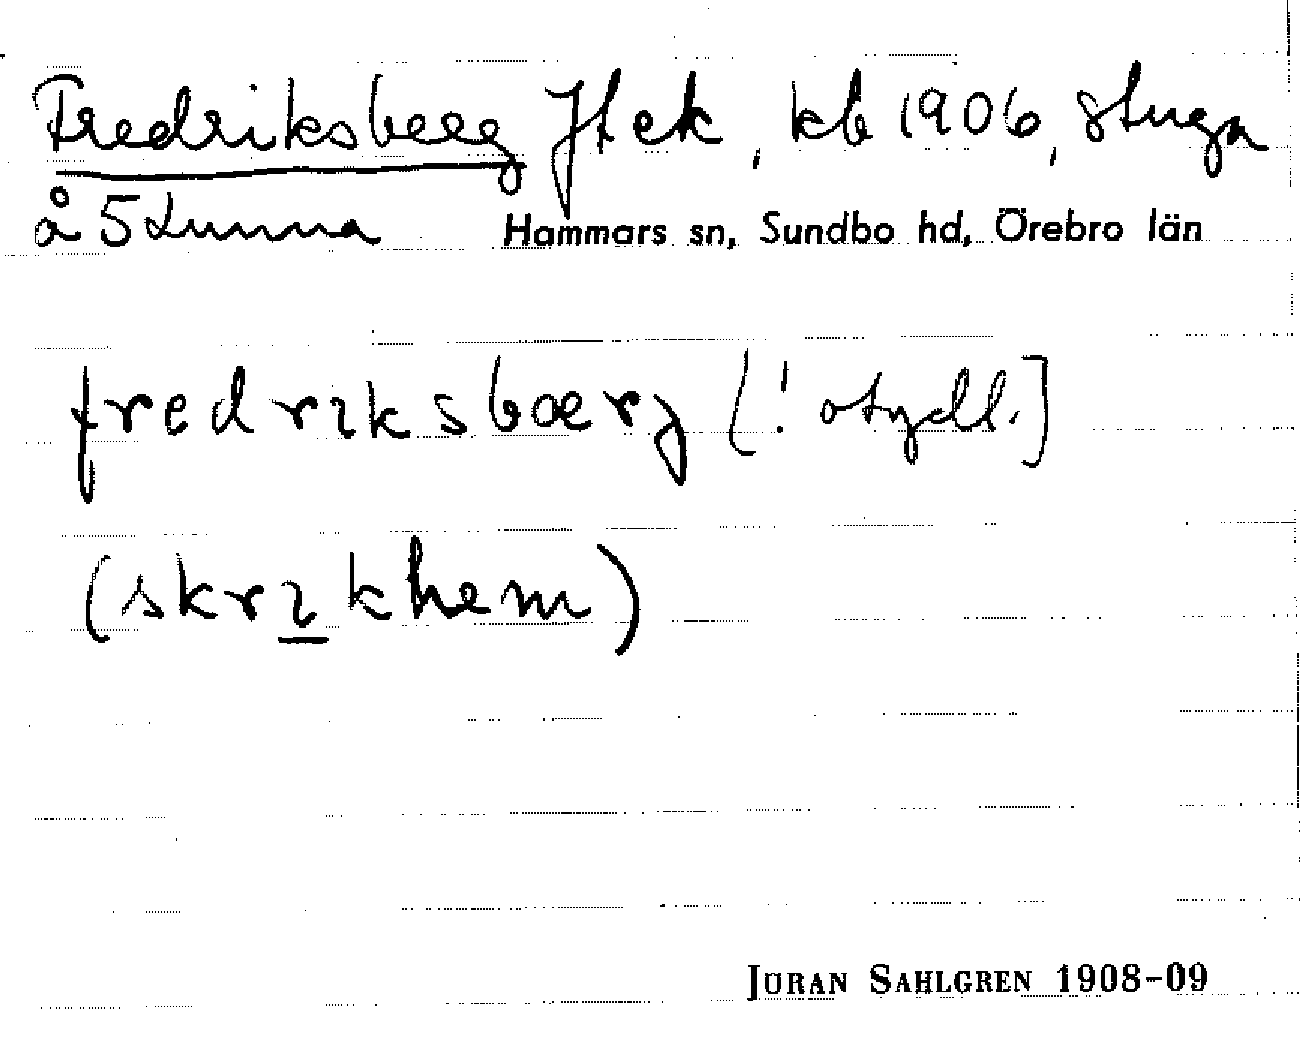 Fredriksberg Jfck, kb 1906, stuga
å 5 Lunna Hammars sn, Sundbo hd, Örebro län
fredrıksbærj [! otydl.]
(skrıkhem)
JÖRAN SAHLGREN 1908-09